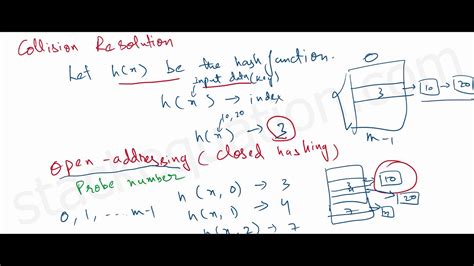 Collision Resolution
Let h(x) be the hash function. 0
input data (key)
h(x) → index 3 → 10 → 20
10, 20
h(x) → 3 m-1
open-addressing (closed hashing)
Probe number
h(x, 0) → 3 10
0, 1, ... m-1 h(x, 1) → 4 20
h(x, 2) → 7 7